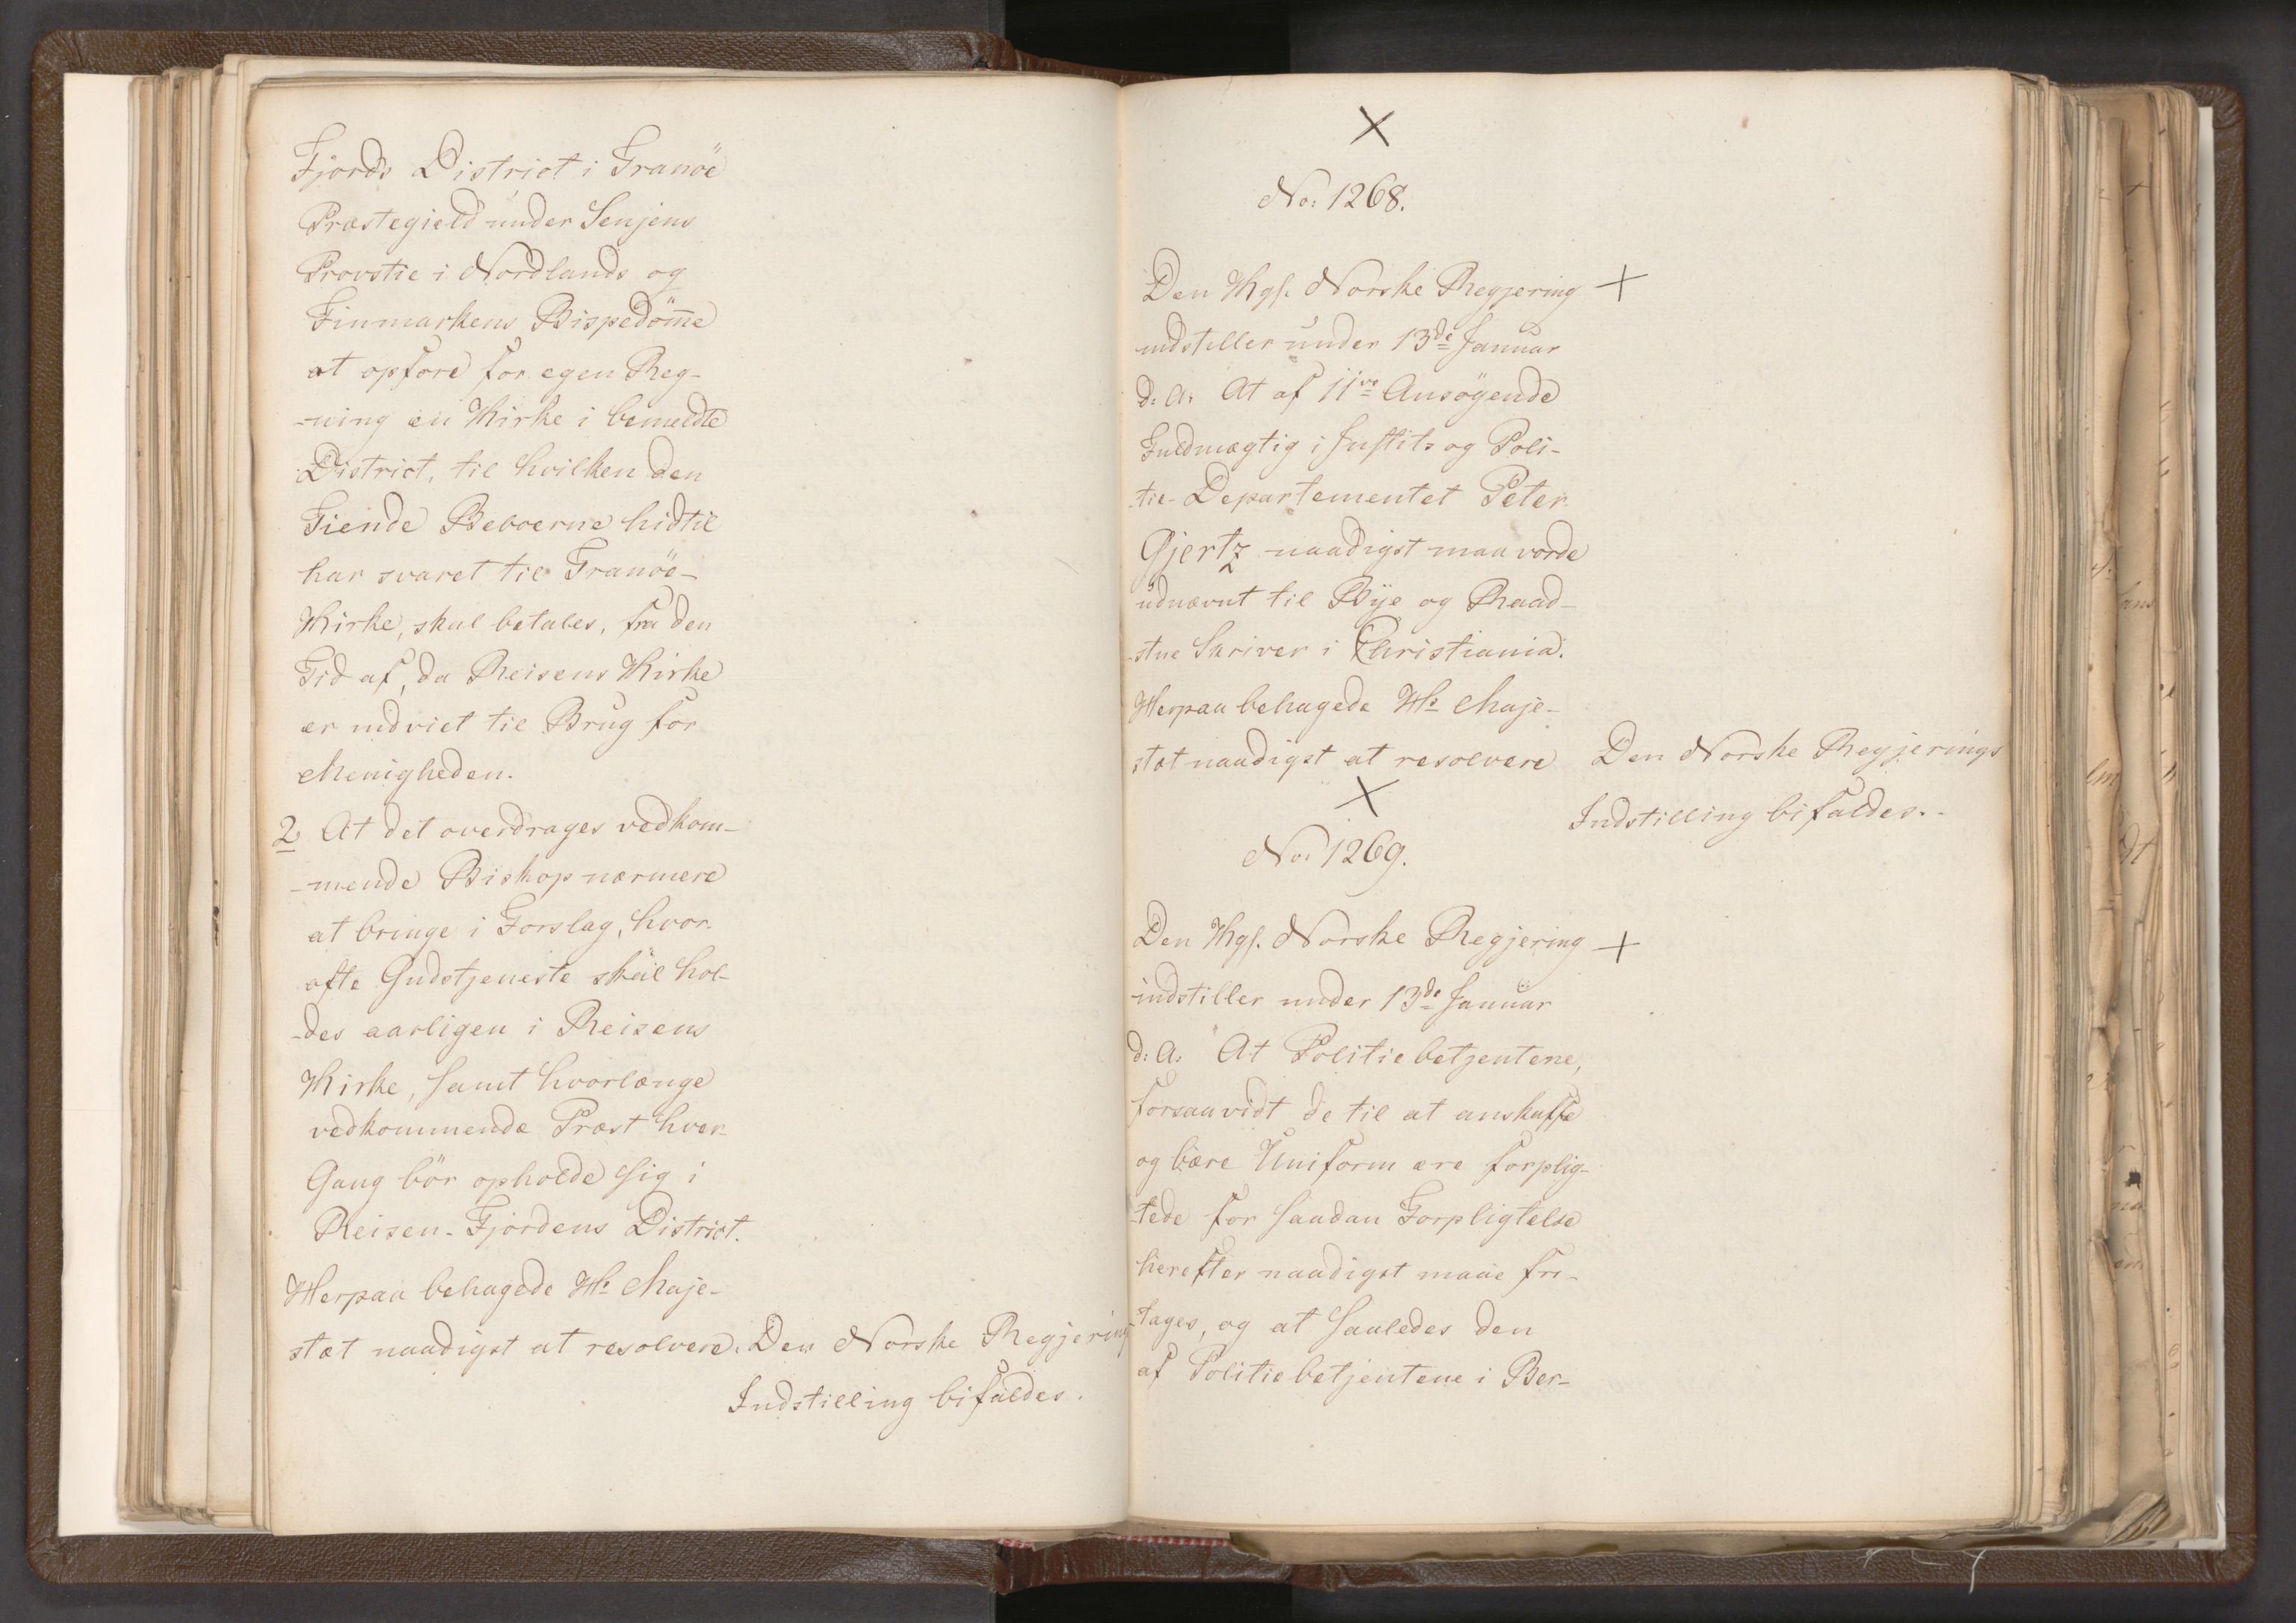 Fjords District i Tranöe
Præstegield under Senjens
Provstie i Nordlands og
Finmarkens Bispedöm̄e
at opföre for egen Reg-
-ning en Kirke i bemeldte
District, til hvilken den
Tiende Beboerne hidtil
har svaret til Tranöe-
Kirke, skal betales, fra den
Tid af, da Reisens Kirke
er indviet til Brug for
Menigheden.
2, At det overdrages vedkom-
-mende Biskop nærmere
at bringe i Forslag, hvor
ofte Gudstjeneste skal hol-
-des aarligen i Reisens
Kirke, samt hvorlænge
vedkommende Præst hver
Gang bör opholde sig i
Reisen-Fjordens District.
Herpaa behagede Hs Maje-
stæt naadigst at resolvere. Den Norske Regjerings
Indstilling bifaldes.
No: 1268.
Den Kgl. Norske Regjering
indstiller under 13de Januar
d: A: At af 11ve Ansögende
Fuldmægtig i Justits og Poli-
tie-Departementet Peter
Gjertz naadigst maa vorde
udnævnt til Bye og Raad-
-stue Skriver i Christiania.
Herpaa behagede Hs Maje-
stæt naadigst at resolvere Den Norske Regjerings
Indstilling bifaldes.
No: 1269.
Den Kgl. Norske Regjering
indstiller under 13de Januar
d: A: At Politiebetjentene,
forsaavidt de til at anskaffe
og bære Uniform ere forplig-
-tede for saadan Forpligtelse
herefter naadigst maae fri-
-tages, og at saaledes den
af Politiebetjentene i Ber-